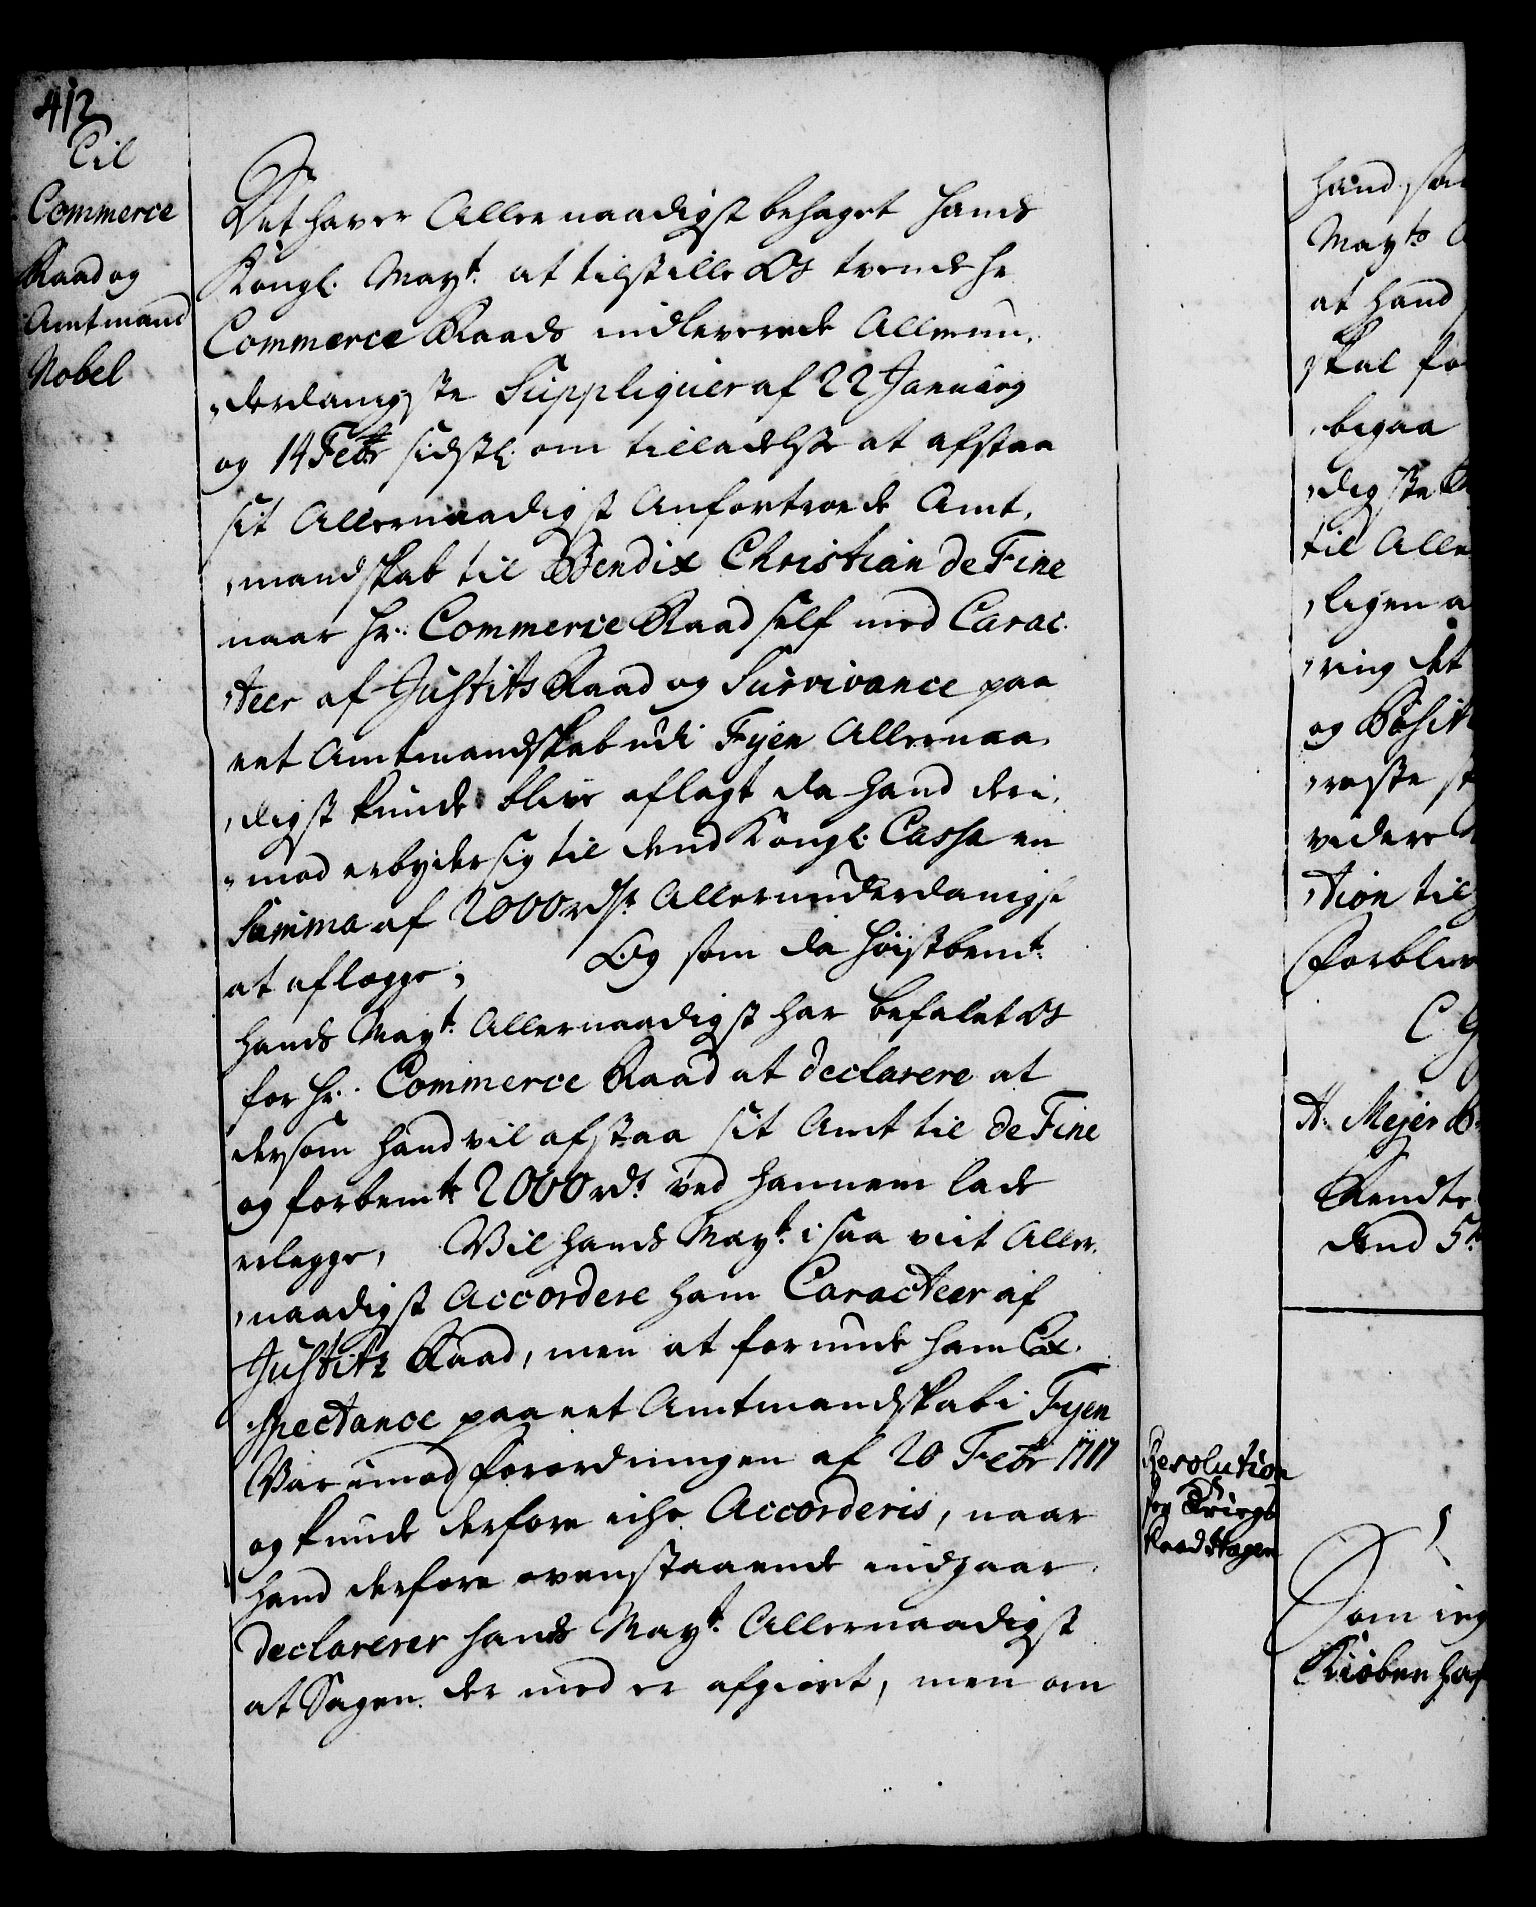 412
Til
Commerce
Raad og
Amtmand
Nobel
Det haver Allernaadigst behaget Hands
Kongl. Mayt. at tilstille Os tvende Hr
Commerce Raads indleverede Allerun,
,derdanigste Suppliquer af 22 January
og 14 Febr sidstl. om tilladelse at afstaa
sit Allernaadigst Anfortroede Amt,
,mandskab til Bendix Christian de Fine
naar Hr. Commerce Raad self med Carac,
,teer af Justits Raad og Survivance paa
eet Amtmandskab udi Fyen Allernaa,
,digst kunde blive aflagt da hand deri,
,mod erbyder sig til dend Kongl. Cassa en
Summa af 2000 rdr. Allerunderdanigst
at aflegge; Og som da høistbemt.
Hands Mayt. Allernaadigst har befalet Os
for Hr. Commerce Raad at declarere at
dersom hand vil afstaa sit Amt til de Fine
og forbemte 2000 rdr. ved hannem lade
erlegge, Vil Hands Mayt. i saa viit Aller,
,naadigst Accordere ham Caracteer af
Justitz Raad, men at forunde ham Ex,
,spectance paa eet Amtmandskab i Fyen
Var imod Forordningen af 20 Febr 1717
og kunde derfore icke Accorderis, naar
hand derfore ovenstaaende indgaar,
declarerer Hands Mayt. Allernaadigst
at Sagen der med er afgiort, men om
Resolution
for Kriegs
Raad Hagen
hand, saa
Mayts
at hand
skal for
begaa
,digste
til Alle
,ligen a
,ring det
og Posit
,reste
videre
,tion til
Forbliv
C G
A. Mejer
Rendte
dend 5t
Som ieg
Kiøbenhaf